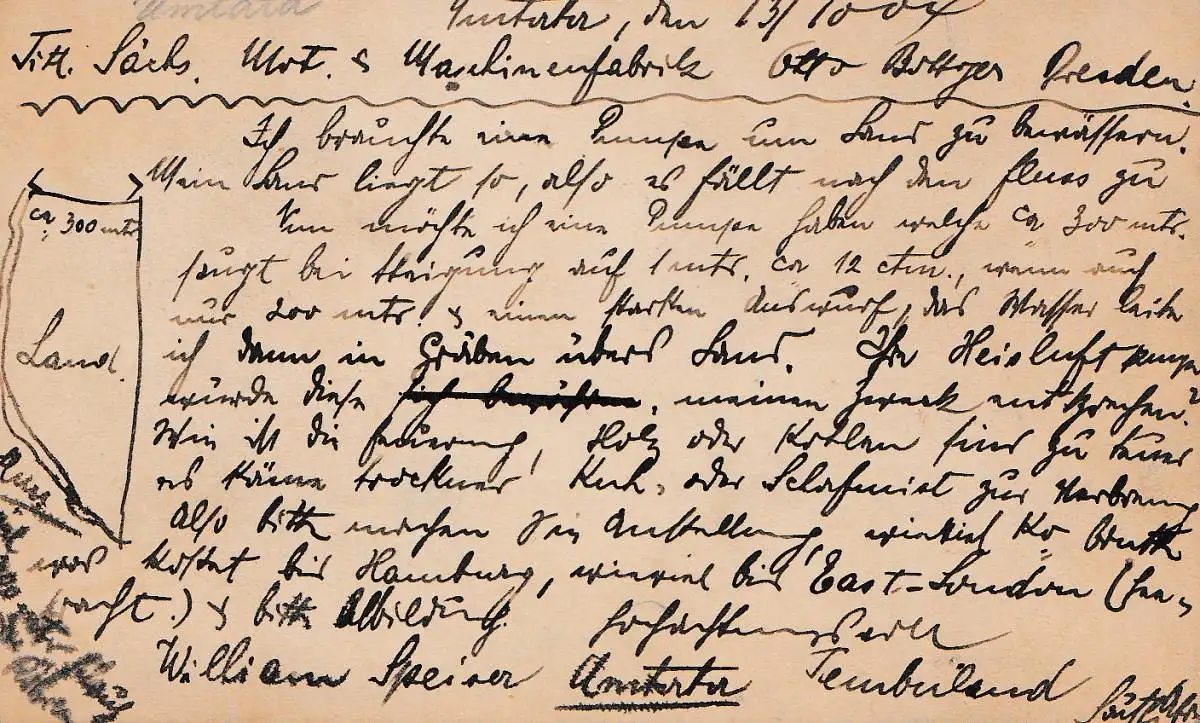 Umtata
Umtata, den 13/10 04
Titl. Sächs. Mot. & Maschinenfabrik Otto Böttger Dresden.
Ich brauchte eine Pumpe um Land zu bewässern.
Mein Land liegt so, also es fällt nach dem Fluss zu
ca. 300 mts
Nun möchte ich eine Pumpe haben welche ca 300 mts.
saugt bei Steigung auf 1 mts. ca 12 ctm., wenn auch
nur 200 mts. & einen starken Auswurf, das Wasser leite
Land.
ich dann in Gräben übers Land. Ihre Heisluft pumpe
würde diese meinen Zweck entsprechen?
Wie ist die Feuerung, Holz oder Kohlen sind zu teuer
es käme trockner Kuh- oder Schafmist zur Verbrennung
Also bitte machen Sie Anstellung, wieviel Ko brutto
was kostet bis Hamburg, wieviel bis East-London (See-
fracht.) & bitte Abbildung.
Hochachtungsvoll
William Speirer Umtata Tembuland